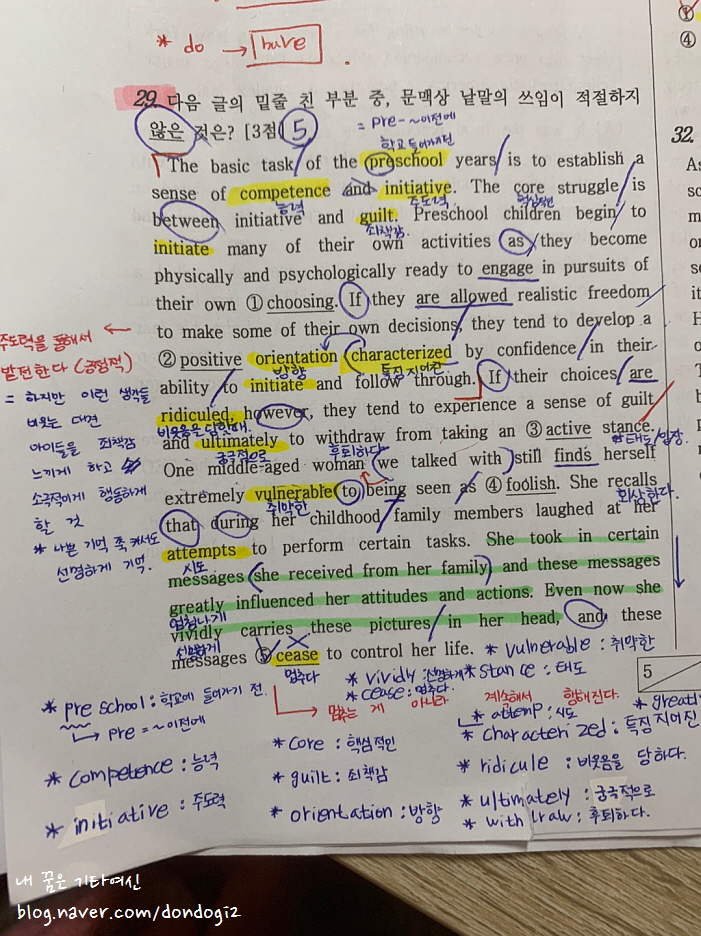 * do → have .
29. 다음 글의 밑줄 친 부분 중, 문맥상 낱말의 쓰임이 적절하지
않은 것은? [3점] 5
= pre- ~이전에
학교 들어가기전
The basic task of the preschool years is to establish a
sense of competence and initiative. The core struggle is
능력 주도력 핵심적인
between initiative and guilt. Preschool children begin to
죄책감
initiate many of their own activities as they become
physically and psychologically ready to engage in pursuits of
their own ① choosing. If they are allowed realistic freedom
to make some of their own decisions, they tend to develop a
② positive orientation characterized by confidence in their
방향 특징 지어진
ability to initiate and follow through. If their choices are
ridiculed, however, they tend to experience a sense of guilt
비웃음을 당할때
and ultimately to withdraw from taking an ③ active stance.
궁극적으로 후퇴하다 태도/입장.
One middle-aged woman we talked with still finds herself
extremely vulnerable to being seen as ④ foolish. She recalls
취약한 회상한다.
that during her childhood family members laughed at her
attempts to perform certain tasks. She took in certain
시도
messages she received from her family and these messages
greatly influenced her attitudes and actions. Even now she
엄청나게
vividly carries these pictures in her head, and these
선명하게
messages ⑤ cease to control her life.
멈추다
주도력을 통해서
발전한다 (긍정적)
= 하지만 이런 생각들
비웃는 대면
아이들을 죄책감
느끼게 하고
소극적이게 행동하게
할 것
* 나쁜 기억 쭉 커서도
선명하게 기억.
* vulnerable : 취약한
* vividly : 선명하게 * stance : 태도
* cease : 멈추다
→ 멈추는 게 아니라 계속해서 행해진다.
* pre school : 학교에 들어가기 전.
→ pre = ~이전에
* competence : 능력
* initiative : 주도력
* core : 핵심적인
* guilt : 죄책감
* orientation : 방향
* attemp : 시도
* characterized : 특징 지어진
* ridicule : 비웃음을 당하다.
* ultimately : 궁극적으로
* withdraw : 후퇴하다.
①
④
32.
5
내 꿈은 기타여신
blog.naver.com/dondogi2